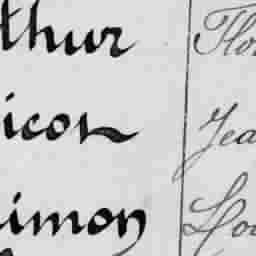 thur Flo
icos Jea
imon Lou